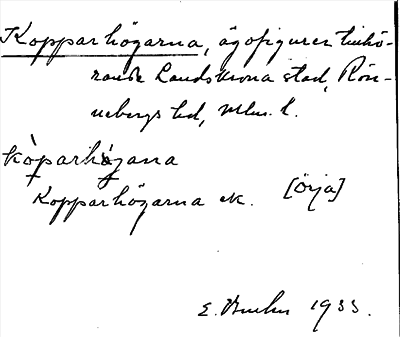 Kopparhögarna, ägofigurer tillhö-
rande Landskrona stad, Rön-
nebergs hd, Mlm. l.
kòparhògana
Kopparhögarna ek. [Örja]
E. 1933.